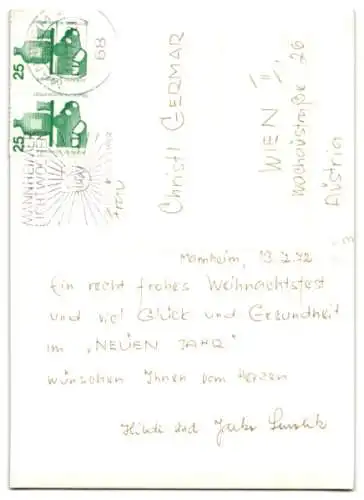 25
25
68
MANNHEIMER
LICHTWOCHEN
Frau
Christl GERMAR
WIEN II.
Wachaustraße 26
Austria
Mannheim, 13.12.72
Ein recht frohes Weihnachtsfest
und viel Glück und Gesundheit
im „NEUEN JAHR"
wünschen Ihnen vom Herzen
Hilde und